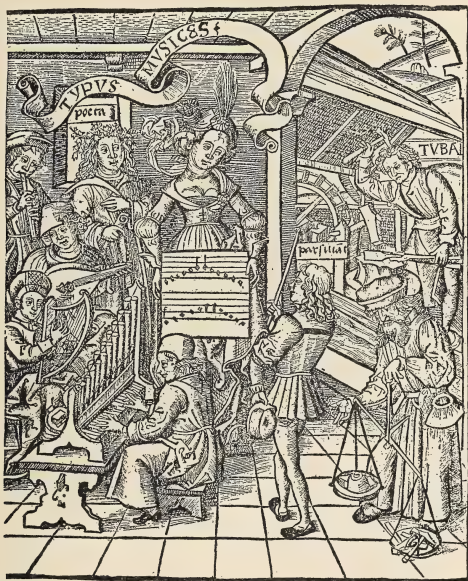 TYPVS
MVSICES
poeta
TVBAL